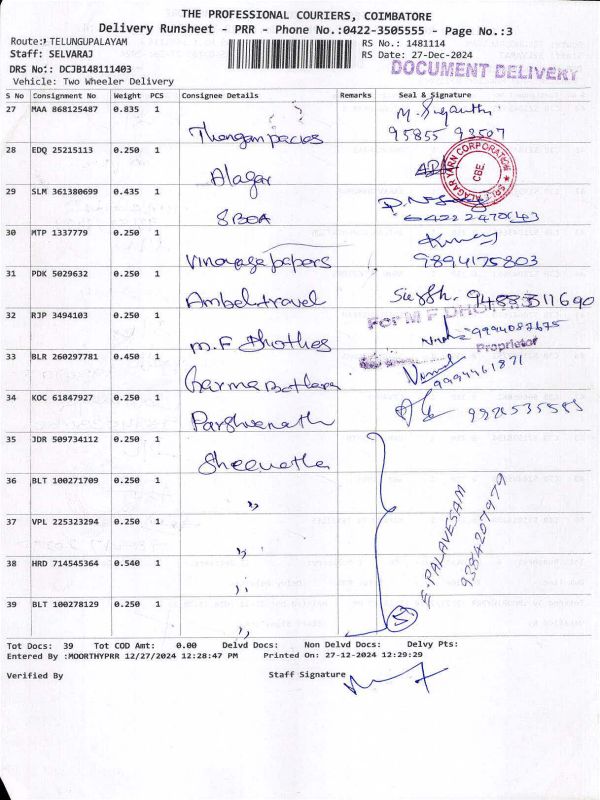 THE PROFESSIONAL COURIERS, COIMBATORE
Delivery Runsheet - PRR - Phone No.:0422-3505555 - Page No.:3
Route: TELUNGUPALAYAM
RS No.: 1481114
Staff: SELVARAJ
RS Date: 27-Dec-2024
DRS No: DCJB148111403
DOCUMENT DELIVERY
Vehicle: Two Wheeler Delivery
S No Consignment No Weight PCS Consignee Details Remarks Seal & Signature
27 MAA 868125487 0.835 1
28 EDQ 25215113 0.250 1 Alagar
SRI ALAGAR YARN CORPORATION CBE.
29 SLM 361380699 0.435 1
30 MTP 1337779 0.250 1
9894175803
31 PDK 5029632 0.250 1 Ambel travel 9488311690
32 RJP 3494103 0.250 1 M.F Dhothes
For M F DHO
Proprietor
33 BLR 260297781 0.450 1
9994461871
34 KOC 61847927 0.250 1 Parshwanath
35 JDR 509734112 0.250 1
36 BLT 100271709 0.250 1 "
37 VPL 225323294 0.250 1 "
38 HRD 714545364 0.540 1 "
39 BLT 100278129 0.250 1 "
E. PALAVESAM
9384207979
5
Tot Docs: 39 Tot COD Amt: 0.00 Delvd Docs: Non Delvd Docs: Delvy Pts:
Entered By :MOORTHYPRR 12/27/2024 12:28:47 PM Printed On: 27-12-2024 12:29:29
Verified By Staff Signature